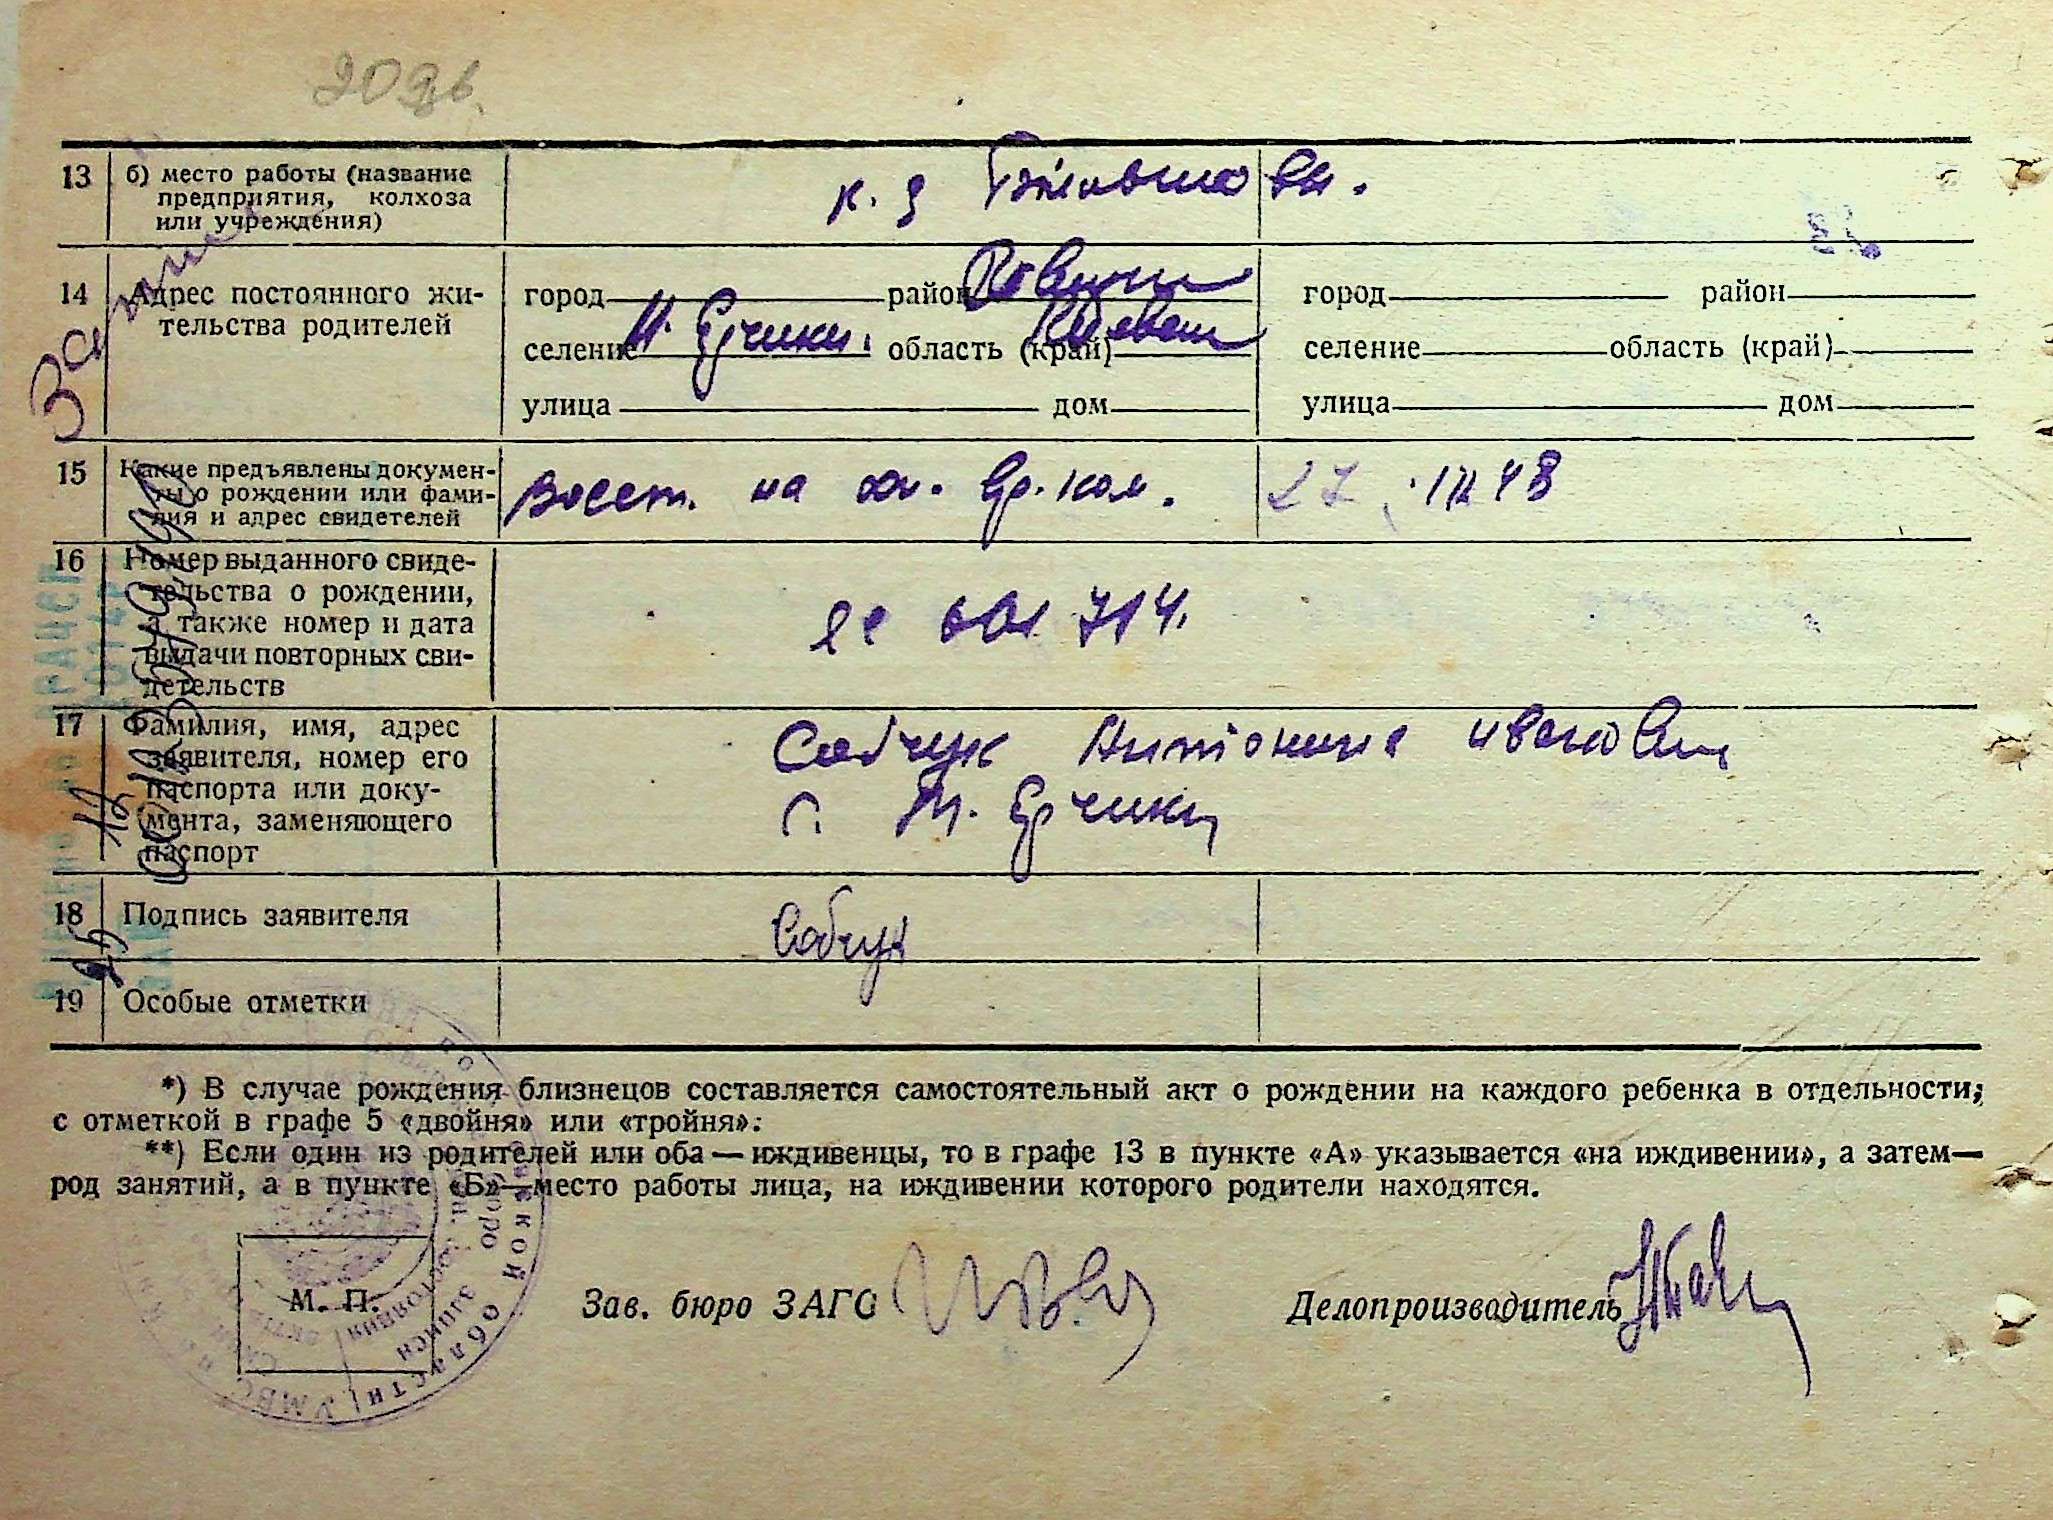 13 б) место работы (название
предприятия, колхоза
или учреждения)
к. з
14 Адрес постоянного жи-
тельства родителей
город район город район
селение Ерчики. область (край) селение область (край)
улица дом улица дом
15 Какие предъявлены докумен-
ты о рождении или фами-
лия и адрес свидетелей
Восст. на ос. вр. ком. 27. III 48
16 Номер выданного свиде-
тельства о рождении,
а также номер и дата
выдачи повторных сви-
детельств
714.
17 Фамилия, имя, адрес
заявителя, номер его
паспорта или доку-
мента, заменяющего
паспорт
Собчук Антонина ивановн
с. Ерчики
18 Подпись заявителя Собчук
19 Особые отметки
*) В случае рождения близнецов составляется самостоятельный акт о рождении на каждого ребенка в отдельности;
с отметкой в графе 5 «двойня» или «тройня».
**) Если один из родителей или оба — иждивенцы, то в графе 13 в пункте «А» указывается «на иждивении», а затем—
род занятий, а в пункте «Б»—место работы лица, на иждивении которого родители находятся.
М. П. Зав. бюро ЗАГС Делопроизводитель